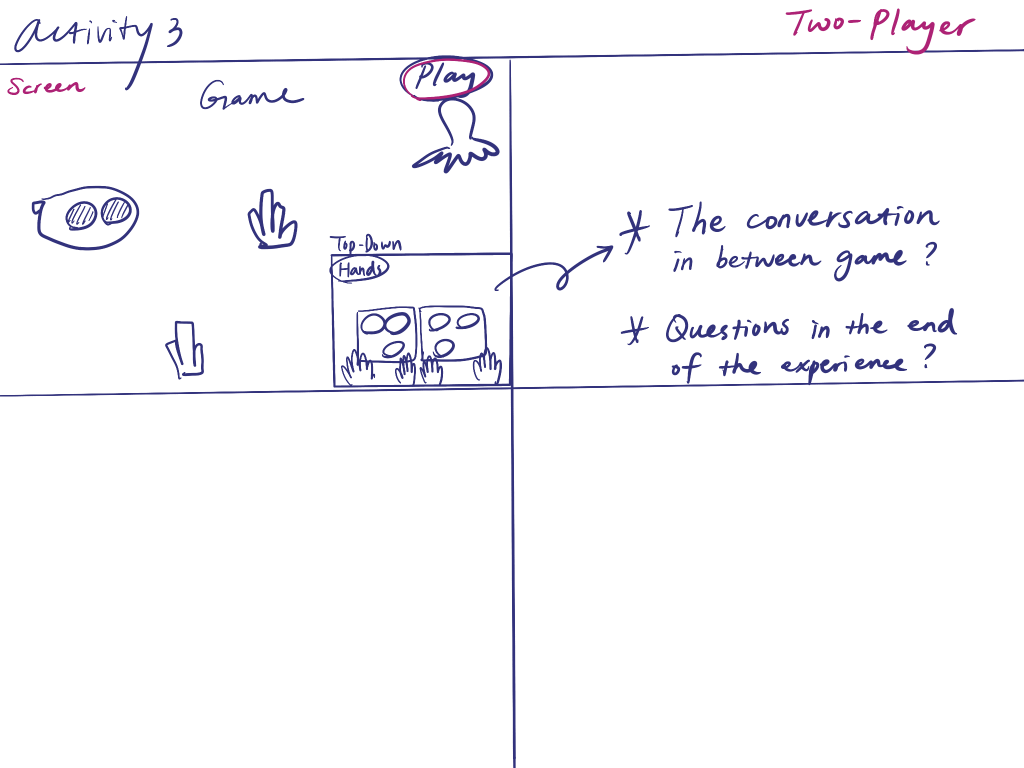 Activity 3
Two-Player
Screen
Game
Play
Top-Down
Hands
* The conversation
in between game?
* Questions in the end
of the experience?